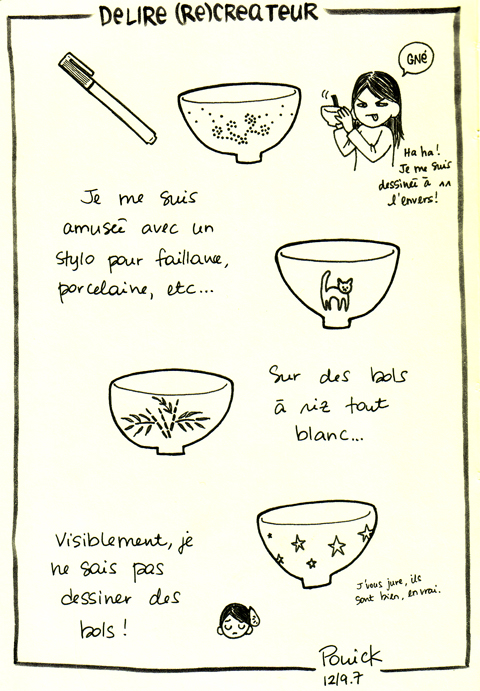 DELIRE (RE)CREATEUR
GNÉ
Ha ha!
Je me suis
dessinée à
l'envers!
Je me suis
amusée avec un
stylo pour faillance,
porcelaine, etc...
Sur des bols
à riz tout
blanc...
Visiblement, je
ne sais pas
dessiner des
bols !
J'vous jure, ils
sont bien, en vrai.
Pouick
12/9.7